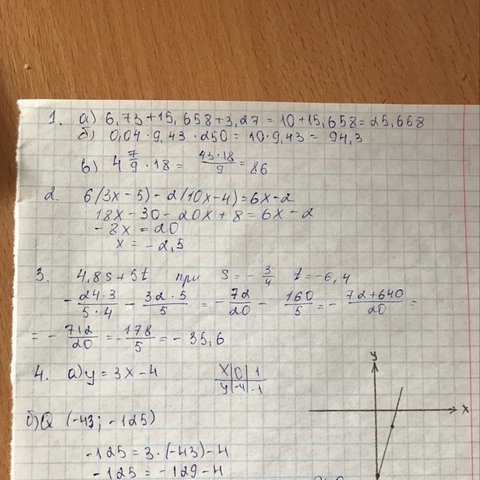 1. а) 6,73+15,658+3,27 = 10+15,658 = 25,658
б) 0,04·9,43·250 = 10·9,43 = 94,3
в) 4 7/9 · 18 = 43·18/9 = 86
2. 6(3x-5)-2(10x-4)=6x-2
18x-30-20x+8=6x-2
-8x = 20
x = -2,5
3. 4,8s+5t при s = -3/4 t = -6,4
-24·3/5·4 - 32·5/5 = -72/20 - 160/5 = -72+640/20 =
= -712/20 = -178/5 = -35,6
4. а) y = 3x-4
x 0 1
y -4 -1
y
x
б) Q (-43; -125)
-125 = 3·(-43)-4
-125 = -129-4